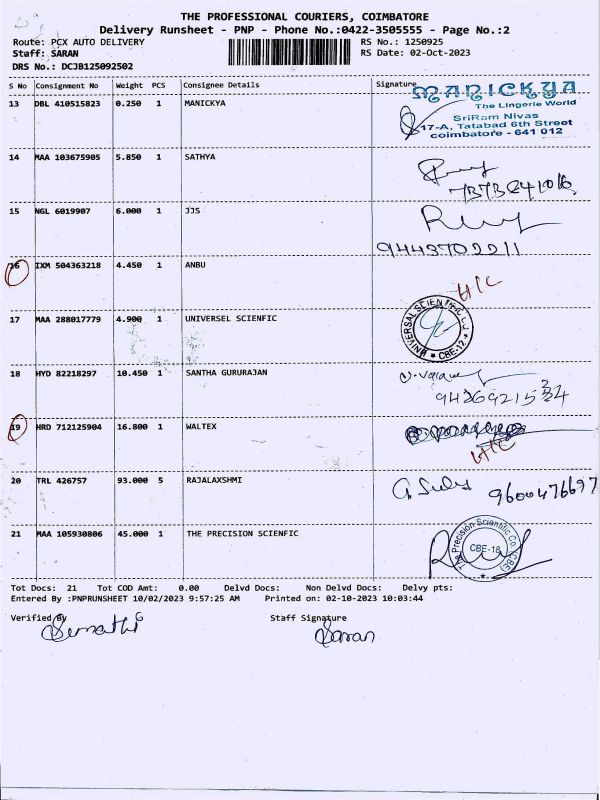 THE PROFESSIONAL COURIERS, COIMBATORE
Delivery Runsheet - PNP - Phone No.:0422-3505555 - Page No.:2
Route: PCX AUTO DELIVERY RS No.: 1250925
Staff: SARAN RS Date: 02-Oct-2023
DRS No.: DCJB125092502
S No Consignment No Weight PCS Consignee Details Signature
13 DBL 410515823 0.250 1 MANICKYA
MANICKYA
The Lingerie World
SriRam Nivas
17-A, Tatabad 6th Street
coimbatore - 641 012
14 MAA 103675905 5.850 1 SATHYA
15 NGL 6019907 6.000 1 JJS
9443702211
16 IXM 504363218 4.450 1 ANBU
H/C
17 MAA 288017779 4.900 1 UNIVERSEL SCIENFIC
UNIVERSAL SCIENTIFIC CO. * CBE-12 *
18 HYD 82218297 10.450 1 SANTHA GURURAJAN
19 HRD 712125904 16.800 1 WALTEX
H/C
20 TRL 426757 93.000 5 RAJALAXSHMI
9600476697
21 MAA 105930806 45.000 1 THE PRECISION SCIENFIC
The Precision Scientific Co. (CBE)
CBE-18
Tot Docs: 21 Tot COD Amt: 0.00 Delvd Docs: Non Delvd Docs: Delvy pts:
Entered By :PNPRUNSHEET 10/02/2023 9:57:25 AM Printed on: 02-10-2023 10:03:44
Verified By Staff Signature
Sumathi Saran